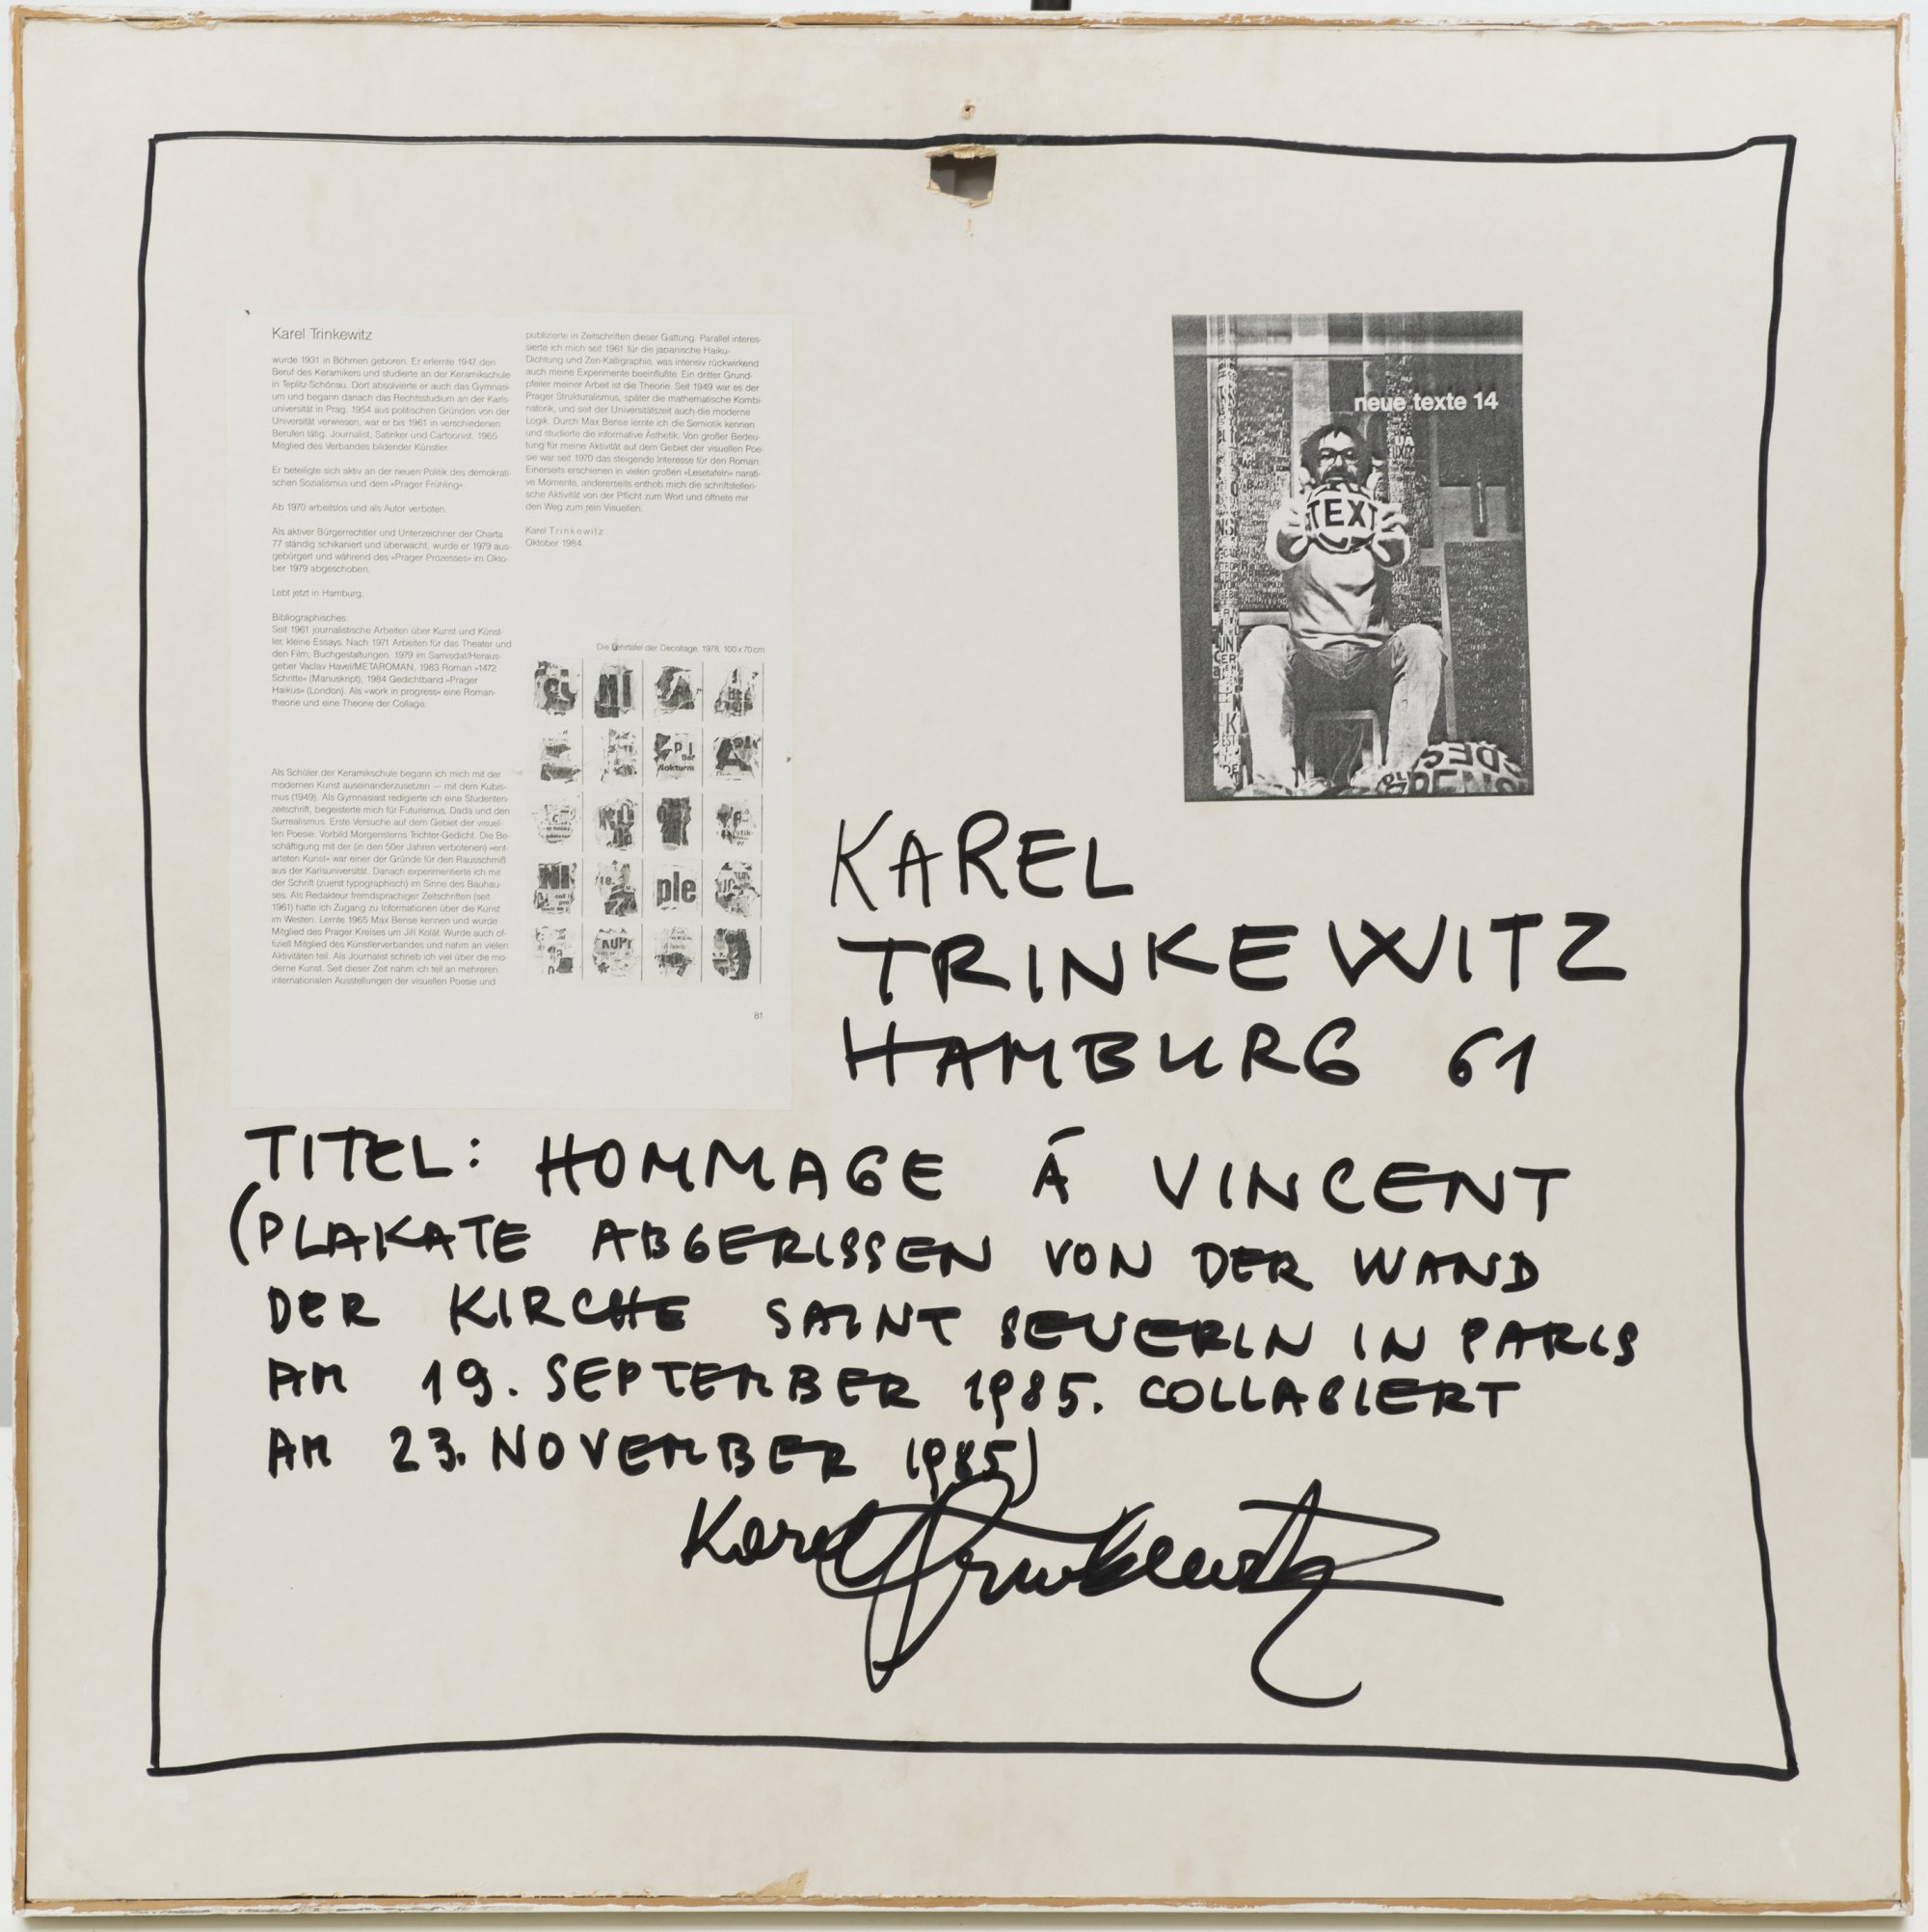 Karel Trinkewitz
wurde 1931 in Böhmen geboren: Er erlernte 1947 den
Beruf des Keramikers und studierte an der Keramikschule
in Teplitz-Schönau. Dort absolvierte er auch das Gymnasi-
um und begann danach das Rechtsstudium an der Karls-
universität in Prag. 1954 aus politischen Gründen von der
Universität verwiesen, war er bis 1961 in verschiedenen
Berufen tätig. Journalist, Satiriker und Cartoonist. 1965
Mitglied des Verbandes bildender Künstler.
Er beteiligte sich aktiv an der neuen Politik des demokrati-
schen Sozialismus und dem »Prager Frühling«.
Ab 1970 arbeitslos und als Autor verboten.
Als aktiver Bürgerrechtler und Unterzeichner der Charta
77 ständig schikaniert und überwacht, wurde er 1979 aus-
gebürgert und während des »Prager Prozesses« im Okto-
ber 1979 abgeschoben.
Lebt jetzt in Hamburg.
Bibliographisches:
Seit 1961 journalistische Arbeiten über Kunst und Künst-
ler, kleine Essays. Nach 1971 Arbeiten für das Theater und
den Film; Buchgestaltungen. 1979 im Samisdat/Heraus-
geber Vaclav Havel/METAROMAN, 1983 Roman »1472
Schritte« (Manuskript), 1984 Gedichtband »Prager
Haikus« (London). Als »work in progress« eine Roman-
theorie und eine Theorie der Collage.
Als Schüler der Keramikschule begann ich mich mit der
modernen Kunst auseinanderzusetzen — mit dem Kubis-
mus (1949). Als Gymnasiast redigierte ich eine Studenten-
zeitschrift, begeisterte mich für Futurismus, Dada und den
Surrealismus. Erste Versuche auf dem Gebiet der visuel-
len Poesie: Vorbild Morgensterns Trichter-Gedicht. Die Be-
schäftigung mit der (in den 50er Jahren verbotenen) »ent-
arteten Kunst« war einer der Gründe für den Rausschmiß
aus der Karlsuniversität. Danach experimentierte ich mit
der Schrift (zuerst typographisch) im Sinne des Bauhau-
ses. Als Redakteur fremdsprachiger Zeitschriften (seit
1961) hatte ich Zugang zu Informationen über die Kunst
im Westen. Lernte 1965 Max Bense kennen und wurde
Mitglied des Prager Kreises um Jiří Kolář. Wurde auch of-
fiziell Mitglied des Künstlerverbandes und nahm an vielen
Aktivitäten teil. Als Journalist schrieb ich viel über die mo-
derne Kunst. Seit dieser Zeit nahm ich teil an mehreren
internationalen Ausstellungen der visuellen Poesie und
publizierte in Zeitschriften dieser Gattung. Parallel interes-
sierte ich mich seit 1961 für die japanische Haiku-
Dichtung und Zen-Kalligraphie, was intensiv rückwirkend
auch meine Experimente beeinflußte. Ein dritter Grund-
pfeiler meiner Arbeit ist die Theorie. Seit 1949 war es der
Prager Strukturalismus, später die mathematische Kombi-
natorik, und seit der Universitätszeit auch die moderne
Logik. Durch Max Bense lernte ich die Semiotik kennen
und studierte die informative Ästhetik. Von großer Bedeu-
tung für meine Aktivität auf dem Gebiet der visuellen Poe-
sie war seit 1970 das steigende Interesse für den Roman.
Einerseits erschienen in vielen großen »Lesetafeln« narati-
ve Momente, andererseits enthob mich die schriftstelleri-
sche Aktivität von der Pflicht zum Wort und öffnete mir
den Weg zum rein Visuellen.
Karel Trinkewitz
Oktober 1984
Die Lehrtafel der Decollage, 1978, 100 x 70 cm
NI
ple
KUPF
81
neue texte 14
UA
TEXT
KAREL
TRINKEWITZ
HAMBURG 61
TITEL: HOMMAGE Á VINCENT
(PLAKATE ABGERISSEN VON DER WAND
DER KIRCHE SAINT SEVERIN IN PARIS
AM 19. SEPTEMBER 1985. COLLAGIERT
AM 23. NOVEMBER 1985)
Karel Trinkewitz